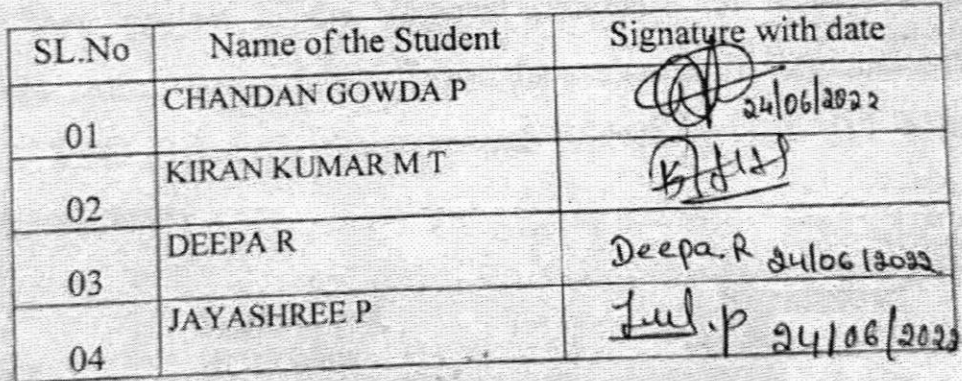 SL.No Name of the Student Signature with date
01 CHANDAN GOWDA P 24/06/2022
02 KIRAN KUMAR M T
03 DEEPA R Deepa.R 24/06/2022
04 JAYASHREE P .P 24/06/2022